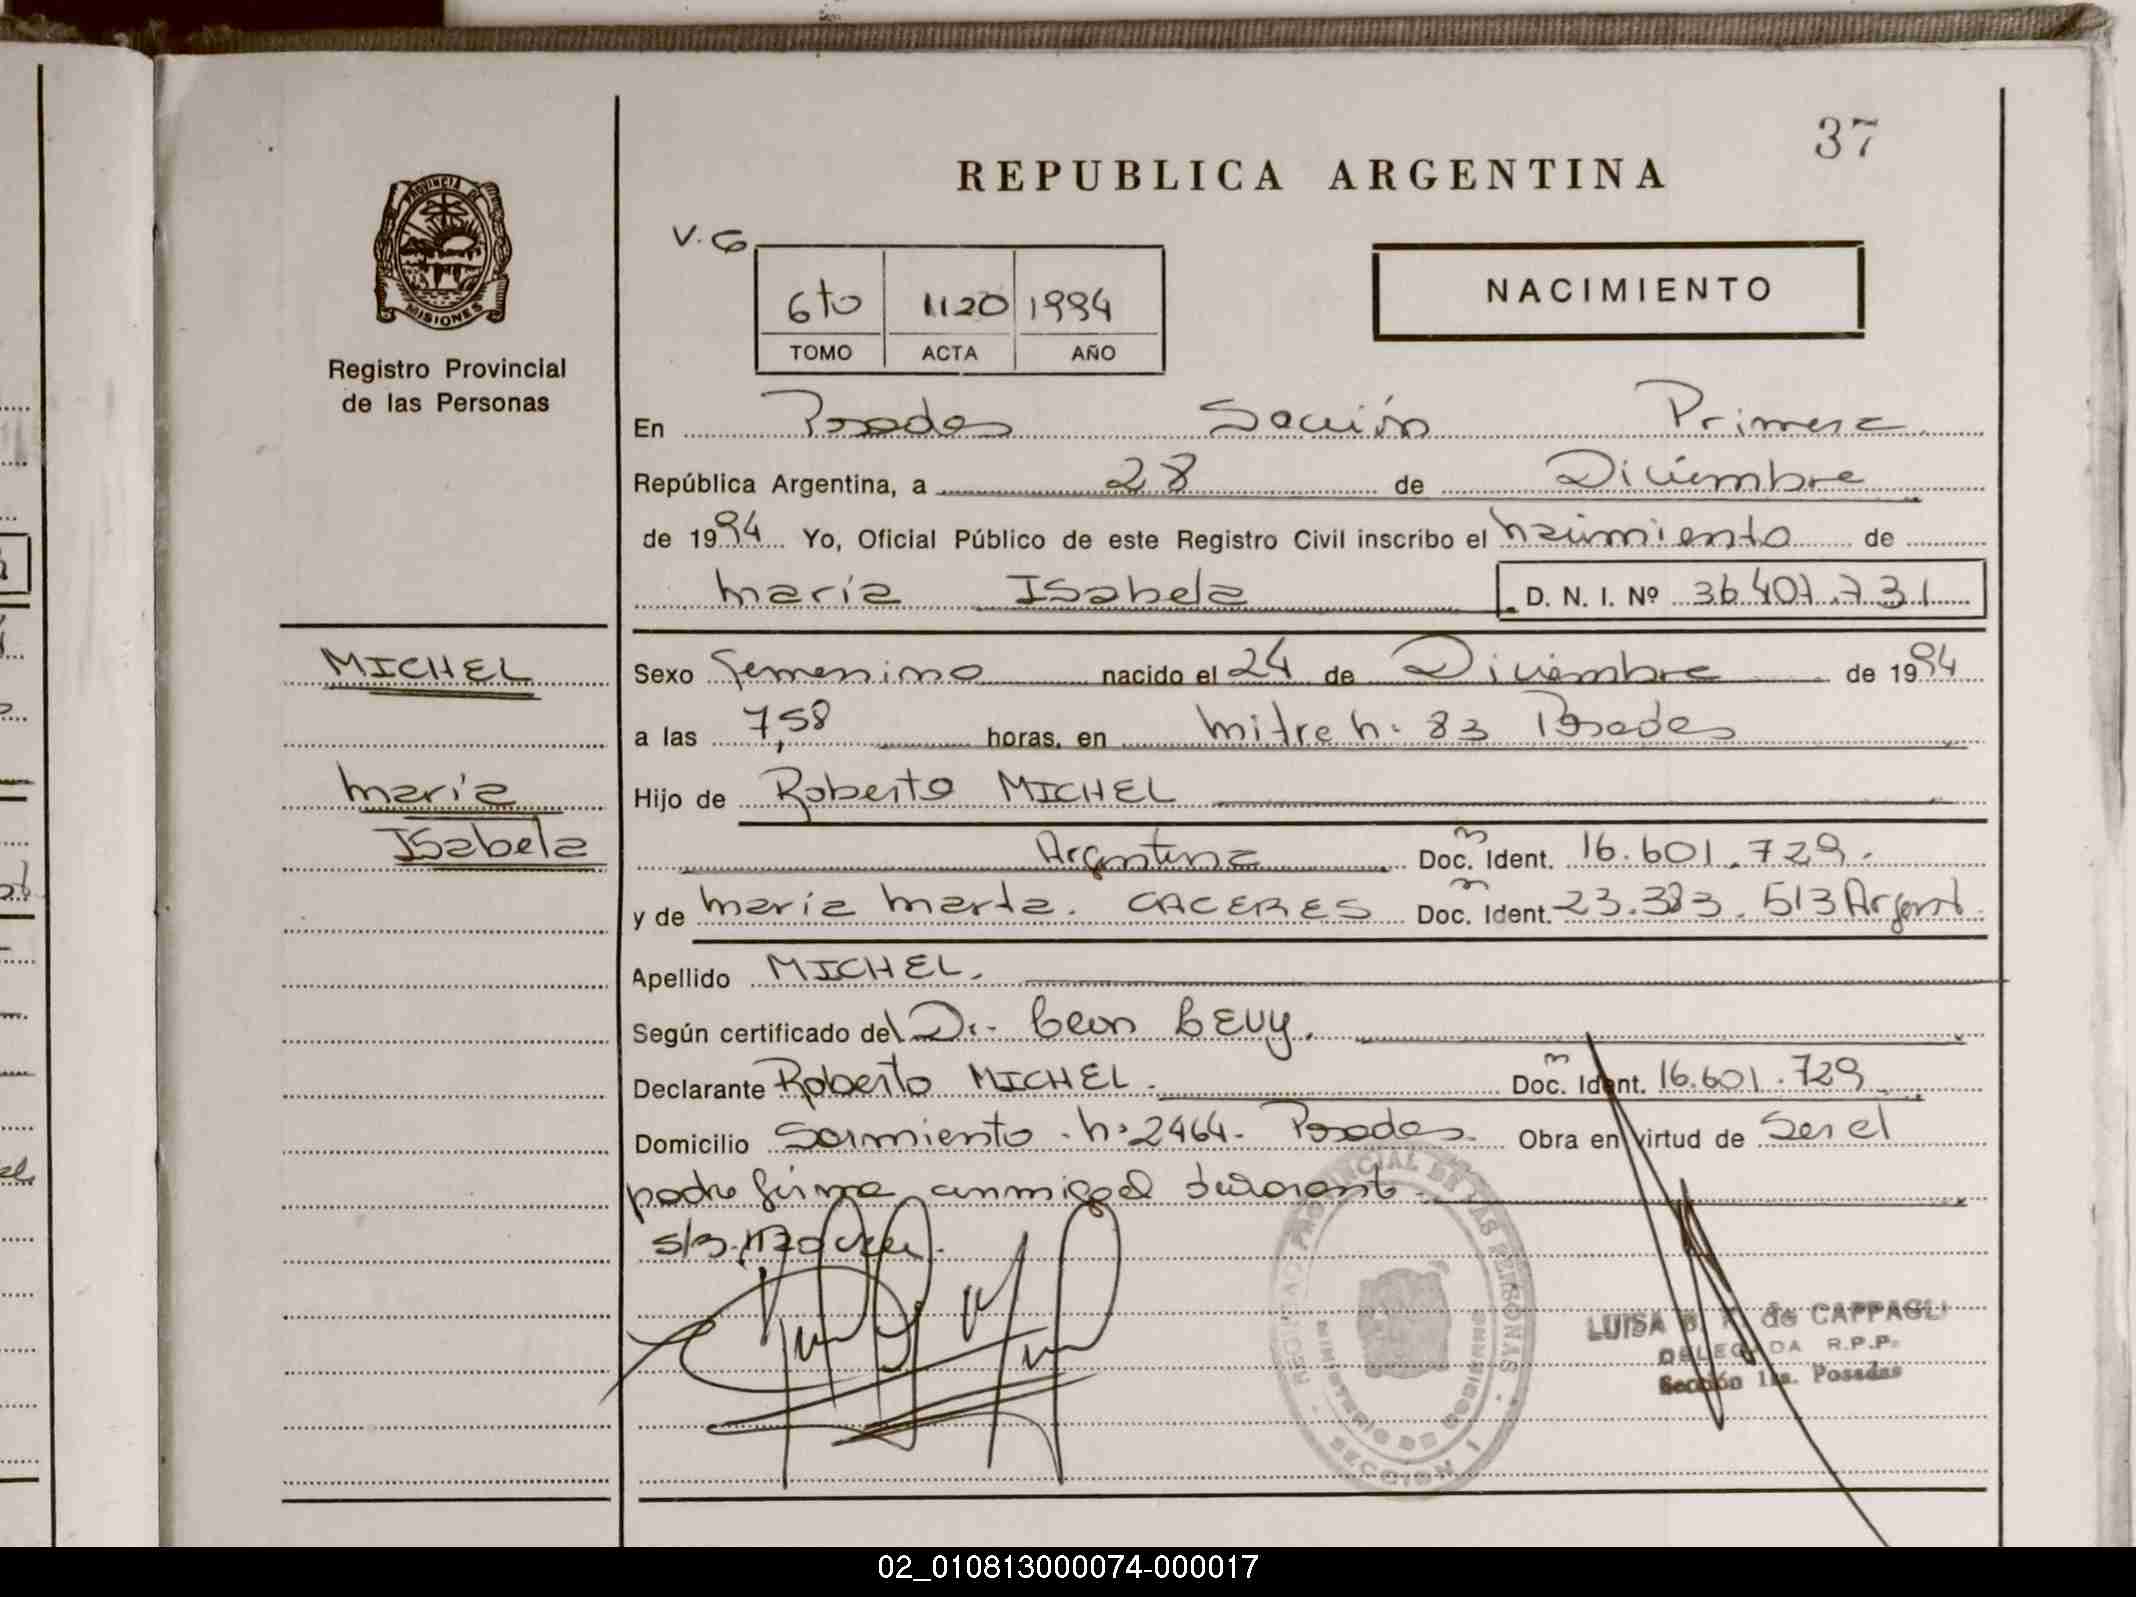 37
REPUBLICA ARGENTINA
PROVINCIA DE
MISIONES
Registro Provincial
de las Personas
V. G
6to 1120 1994
TOMO ACTA AÑO
NACIMIENTO
En Posadas Sección Primera
República Argentina, a 28 de Diciembre
de 1994 Yo, Oficial Público de este Registro Civil inscribo el nacimiento de
maría Isabela D. N. I. Nº 36.407.731
MICHEL
maría
Isabela
Sexo femenino nacido el 24 de Diciembre de 1994
a las 7,58 horas, en mitre n: 83 Posadas
Hijo de Roberto MICHEL
Argentina Doc. Ident. 16.601.729.
y de maría marta. CACERES Doc. Ident. 23.383.513 Argent.
Apellido MICHEL.
Según certificado del Dr. León LEVY.
Declarante Roberto MICHEL. Doc. Ident. 16.601.729
Domicilio Sarmiento n: 2464- Posadas. Obra en virtud de Ser el
padre firma conmigo el declarante.
REGISTRO PROVINCIAL DE LAS PERSONAS
MINISTERIO DE GOBIERNO
SECCION 1
LUISA de CAPPAGLI
DELEGADA R.P.P.
Sección 1ra. Posadas
02_010813000074-000017